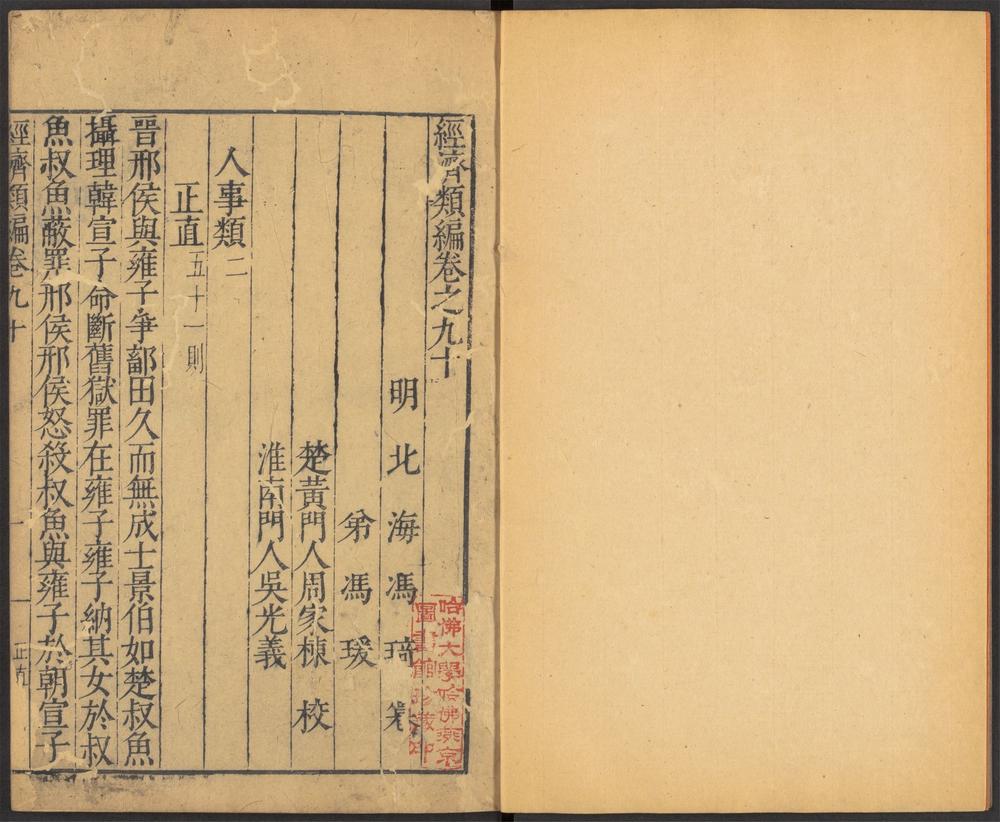 經濟類編卷之九十
明北海馮琦纂
弟馮瑗
楚黃門人周家棟校
淮南門人吳光義
人事類二
正直五十一則
晉邢侯與雍子爭鄐田久而無成士景伯如楚叔魚
攝理韓宣子命斷舊獄罪在雍子雍子納其女於叔
魚叔魚蔽罪邢侯邢侯怒殺叔魚與雍子於朝宣子
經濟類編卷九十 正直 一
哈佛大學哈佛燕京
圖書館珍藏印